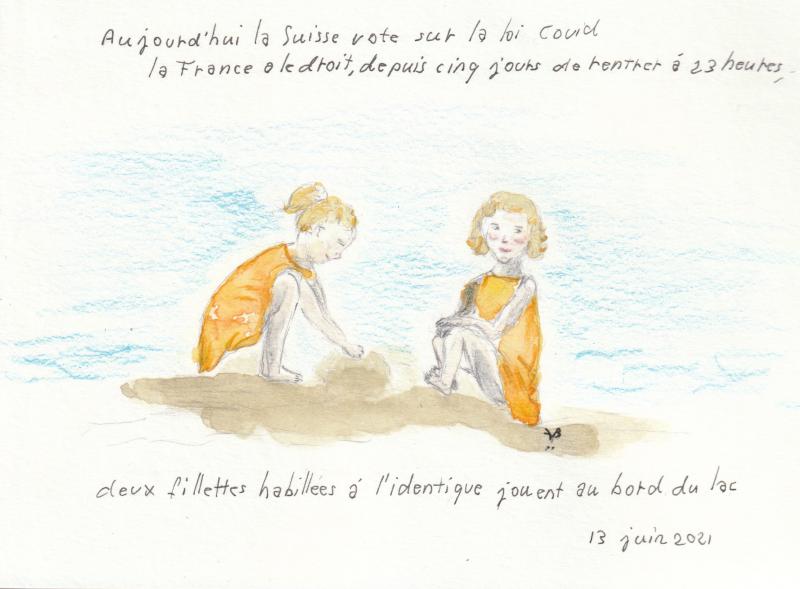 Aujourd'hui la Suisse vote sur la loi Covid
la France a le droit, depuis cinq jours de rentrer à 23 heures,
deux fillettes habillées à l'identique jouent au bord du lac
13 juin 2021